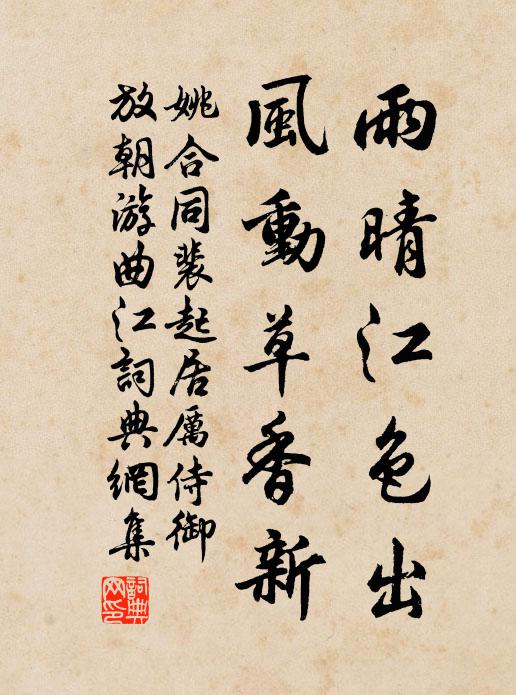 雨晴江色出
風動草香新
姚合同裴起居厲侍御
放朝游曲江詞典網集
詞典
网印